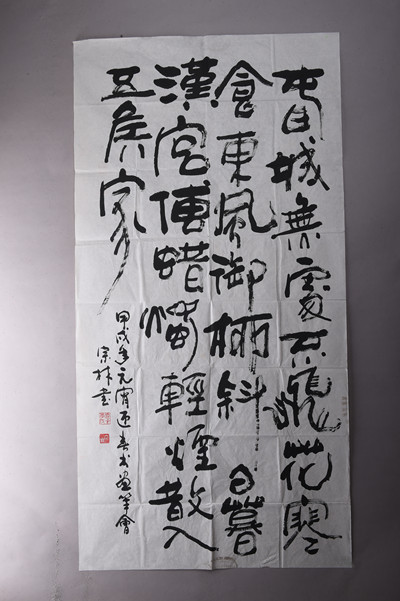 春城無處不飛花寒
食東風御柳斜日暮
漢宮傳蜡燭輕煙散入
五侯家
甲戌年元宵迎春书畫筆會
宗林書